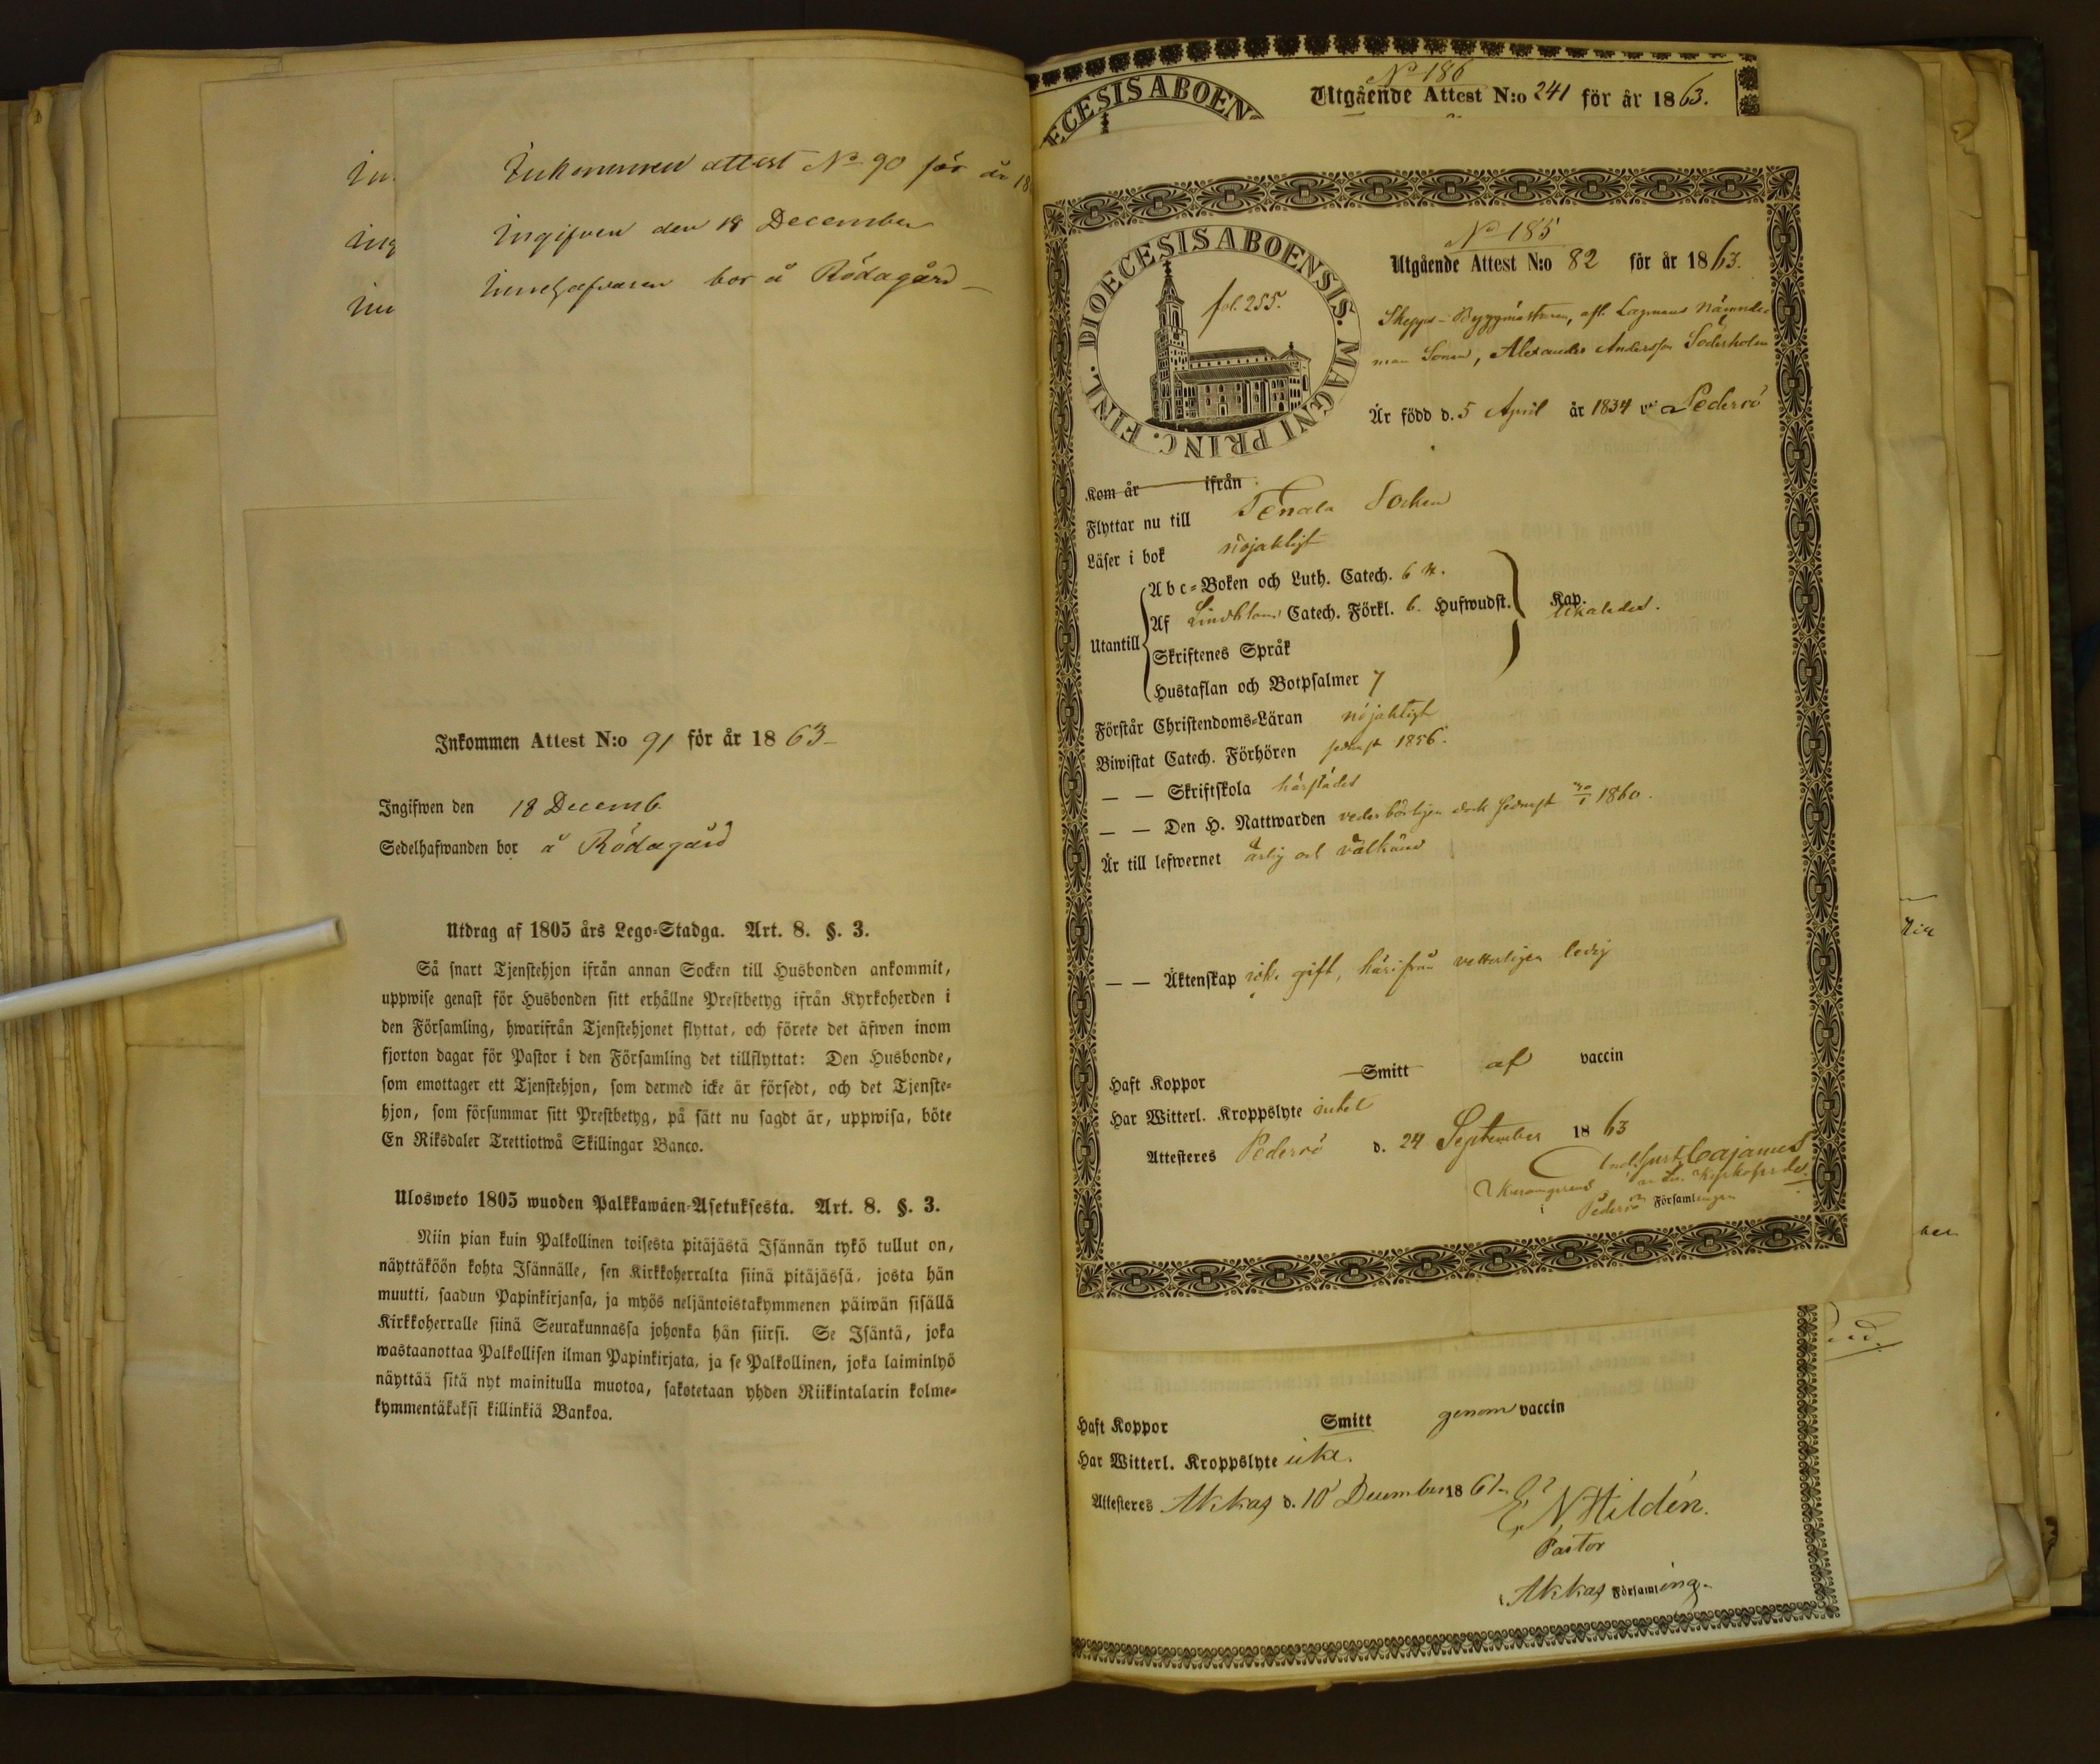 Inkommen attest No 90 för år 18
Ingifven den 18 December
Innehafvaren bor å Rödagård
In
Ing
Inn
Inkommen Attest N:o 91 för år 1863
Ingifwen den 18 Decemb.
Sedelhafwanden bor å Rödagård
Utdrag af 1805 års Lego-Stadga. Art. 8. §. 3.
Så snart Tjenstehjon ifrån annan Socken till Husbonden ankommit,
uppwise genast för Husbonden sitt erhållne Prestbetyg ifrån Kyrkoherden i
den Församling, hwarifrån Tjenstehjonet flyttat, och förete det äfwen inom
fjorton dagar för Pastor i den Församling det tillflyttat: Den Husbonde,
som emottager ett Tjenstehjon, som dermed icke är försedt, och det Tjenste-
hjon, som försummar sitt Prestbetyg, på sätt nu sagdt är, uppwisa, böte
En Riksdaler Trettiotwå Skillingar Banco.
Ulosweto 1805 wuoden Palkkawäen-Asetuksesta. Art. 8. §. 3.
Niin pian kuin Palkollinen toisesta pitäjästä Isännän tykö tullut on,
näyttäköön kohta Isännälle, sen Kirkkoherralta siinä pitäjässä, josta hän
muutti, saadun Papinkirjansa, ja myös neljäntoistakymmenen päiwän sisällä
Kirkkoherralle siinä Seurakunnassa johonka hän siirsi. Se Isäntä, joka
wastaanottaa Palkollisen ilman Papinkirjata, ja se Palkollinen, joka laiminlyö
näyttää sitä nyt mainitulla muotoa, sakotetaan yhden Riikintalarin kolme-
kymmentäkaksi killinkiä Bankoa.
No 186
ECESIS ABOEN
Utgående Attest N:o 241 för år 1863.
No 185
DIOECESIS ABOENSIS. MAGNI PRINC. FINL.
fol. 255.
Utgående Attest N:o 82 för år 1863.
Skepps-Byggmästaren, afl. Lagmans Nämnde
man Sonen, Alexander Andersson Söderholm
Är född d. 5 April år 1834 i Pedersö
Kom år ifrån
Flyttar nu till Tenala Socken
Läser i bok nöjaktigt
Utantill
Abc-Boken och Luth. Catech. 6 H.
Af Lindbloms Catech. Förkl. 6. Hufwudst. Kap.
Skriftenes Språk
Hustaflan och Botpsalmer 7
Förstår Christendoms-Läran nöjaktigt
Biwistat Catech. Förhören sednast 1856.
— — Skriftskola härstädes
— — Den H. Nattwarden vederbörligen dock sednast 1860.
Är till lefwernet ärlig och välkänd
— — Äktenskap icke gift, härifrån vetterligen ledig
Haft Koppor Smitt af vaccin
Har Witterl. Kroppslyte intet
Attesteres Pedersö d. 24 September 1863
Gust. Cajanus
i Pedersö Församlingen
Haft Koppor Smitt genom vaccin
Har Witterl. Kroppslyte icke.
Attesteres Akkas d. 10 December 1861
E. N. Hildén.
Pastor
i Akkas Församling.